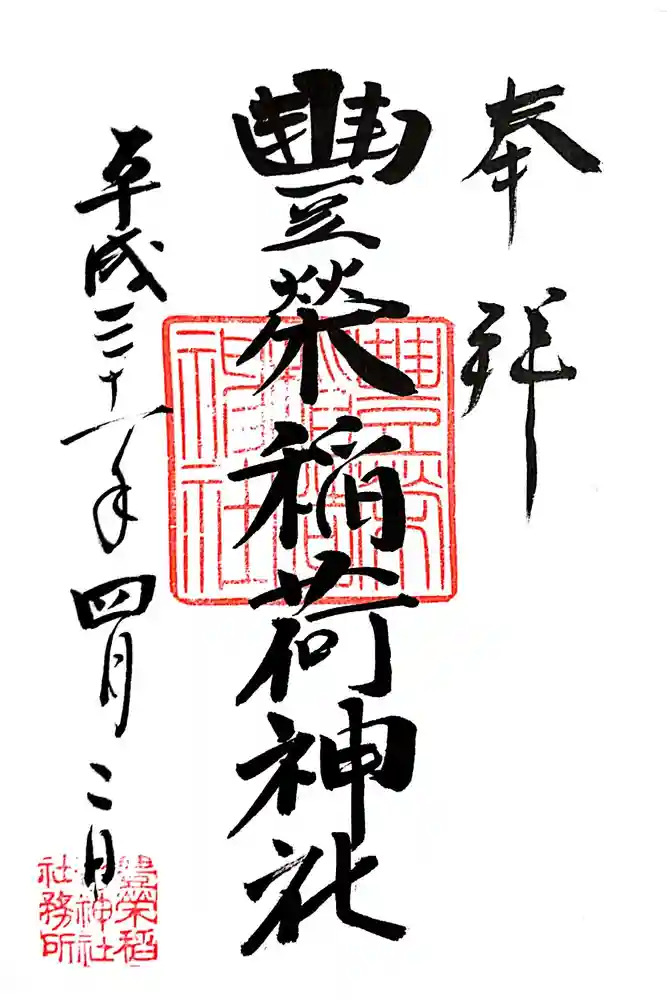 奉拝
豐榮稲荷神社
平成三十一年四月二日
豊榮稲荷神社
豊榮稲
荷神社
社務所